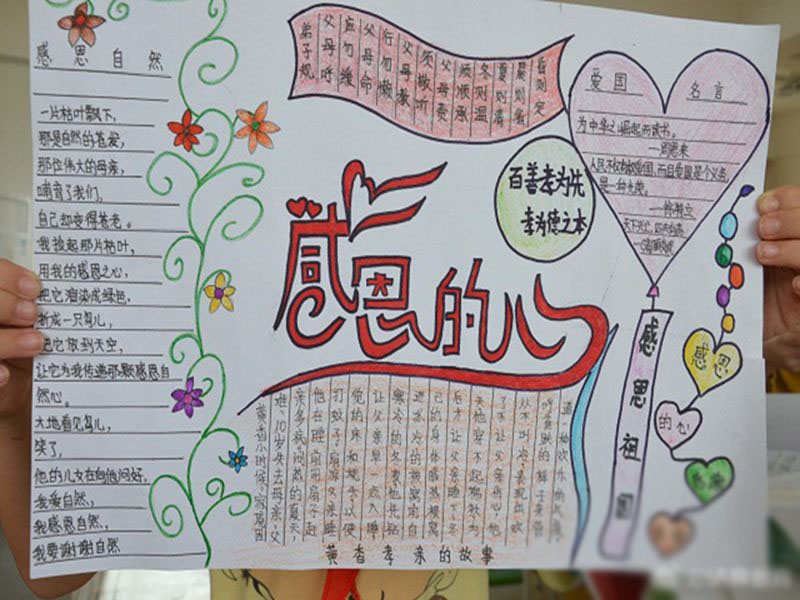 感恩自然
一片枯叶飘下,
那是自然的苍发,
那位伟大的母亲,
哺育了我们,
自己却变得苍老。
我捡起那片枯叶,
用我的感恩之心,
把它渲染成绿色,
折成一只鸟儿,
把它放到天空,
让它为我传递那颗感恩自
然心。
大地看见鸟儿,
笑了,
他的儿女在向他问好,
我爱自然,
我感恩自然,
我要谢谢自然
弟子规
父母呼
应勿缓
父母命
行勿懒
父母教
须敬听
父母责
须顺承
冬则温
夏则凊
晨则省
昏则定
感恩的心
百善孝为先
孝为德之本
爱国 名言
为中华之崛起而读书。
—周恩来
是一种光荣。
感恩祖国
感恩
的心
黄香小时候,家境困
难,10岁失去母亲,父
亲多病。闷热的夏天
他在睡前用扇子赶
打蚊子,扇凉父亲睡
觉的床和枕头,以便
让父亲早一点入睡
寒冷的冬夜,他先钻
进冰冷的被窝,用自
己的身体暖热被窝
后才让父亲睡下;冬
天他穿不起棉袄,为
了不让父亲伤心,他
从不叫冷,表现出欢
黄香孝亲的故事